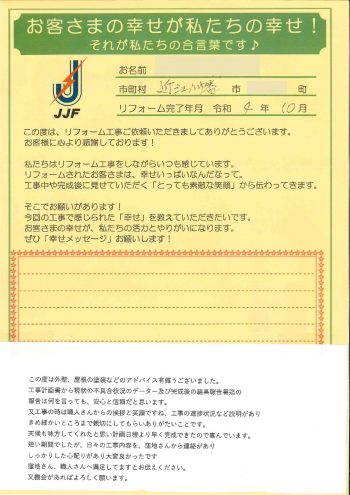 お客さまの幸せが私たちの幸せ！
それが私たちの合言葉です♪
JJF
お名前
市町村 近江八幡 市 町
リフォーム完了年月 令和 4 年 10 月
この度は、リフォーム工事ご依頼いただきましてありがとうございます。
お客様に心より感謝しております！
私たちはリフォーム工事をしながらいつも感じています。
リフォームされたお客さまは、幸せいっぱいなんだなって。
工事中や完成後に見せていただく「とっても素敵な笑顔」から伝わってきます。
そこでお願いがあります！
今回の工事で感じられた「幸せ」を教えていただきたいです。
お客さまの幸せが、私たちの活力とやりがいになります。
ぜひ「幸せメッセージ」お願いします！
この度は外壁、屋根の塗装などのアドバイス有難うございました。
工事計画書から現状の不具合状況のデーター及び完成後の結果報告書迄の
報告は何を言っても、安心と信頼だと思います。
又工事の時は職人さんからの挨拶と笑顔ですね、工事の進捗状況など説明があり
きめ細かいところまで親切にしてもらいありがたいことです。
天候も味方してくれたと思い計画日程より早く完成できたので喜んでいます。
短い期間でしたが、日々の工事内容を、窪地さんから連絡があり
しっかりした心配りがあり大変良かったです
窪地さん、職人さんへ満足してますとお伝えください。
又機会があればよろしく願います。